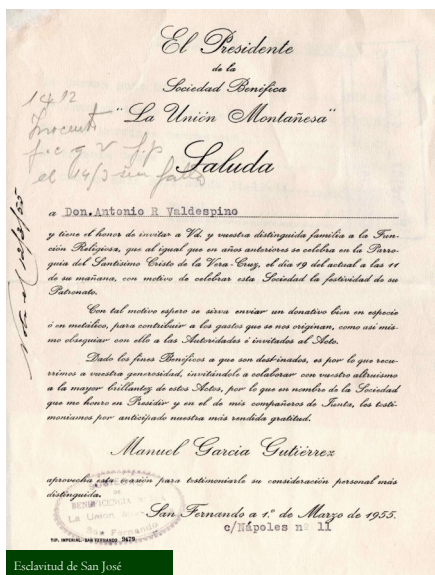 El Presidente
de la
Sociedad Benéfica
"La Unión Montañesa"
Saluda
1412
el 14/3
a Don.Antonio R Valdespino
y tiene el honor de invitar a Vd. y vuestra distinguida familia a la Fun-
ción Religiosa, que al igual que en años anteriores se celebra en la Parro-
quia del Santísimo Cristo de la Vera-Cruz, el dia 19 del actual a las 11
de su mañana, con motivo de celebrar esta Sociedad la festividad de su
Patronato.
Con tal motivo espero se sirva enviar un donativo bien en especie
ó en metálico, para contribuir a los gastos que se nos originan, como asi mis-
mo obsequiar con ello a las Autoridades é invitados al Acto.
Dado los fines Benéficos a que son destinados, es por lo que recu-
rrimos a vuestra generosidad, invitándole a colaborar con vuestro altruismo
a la mayor brillantez de estos Actos, por lo que en nombre de la Sociedad
que me honro en Presidir y en el de mis compañeros de Junta, les testi-
moniamos por anticipado nuestra más rendida gratitud.
Manuel García Gutiérrez
aprovecha esta ocasión para testimoniarle su consideración personal más
distinguida.
San Fernando a 1.º de Marzo de 1955.
c/Nápoles nº 11
DE
BENEFICENCIA
La Unión
San Fernando
TIP. IMPERIAL-SAN FERNANDO 9479
Esclavitud de San José